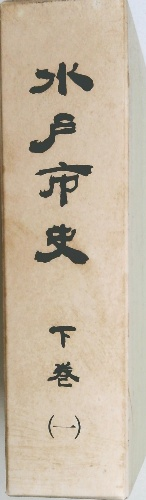 水戸市史
下巻
(一)